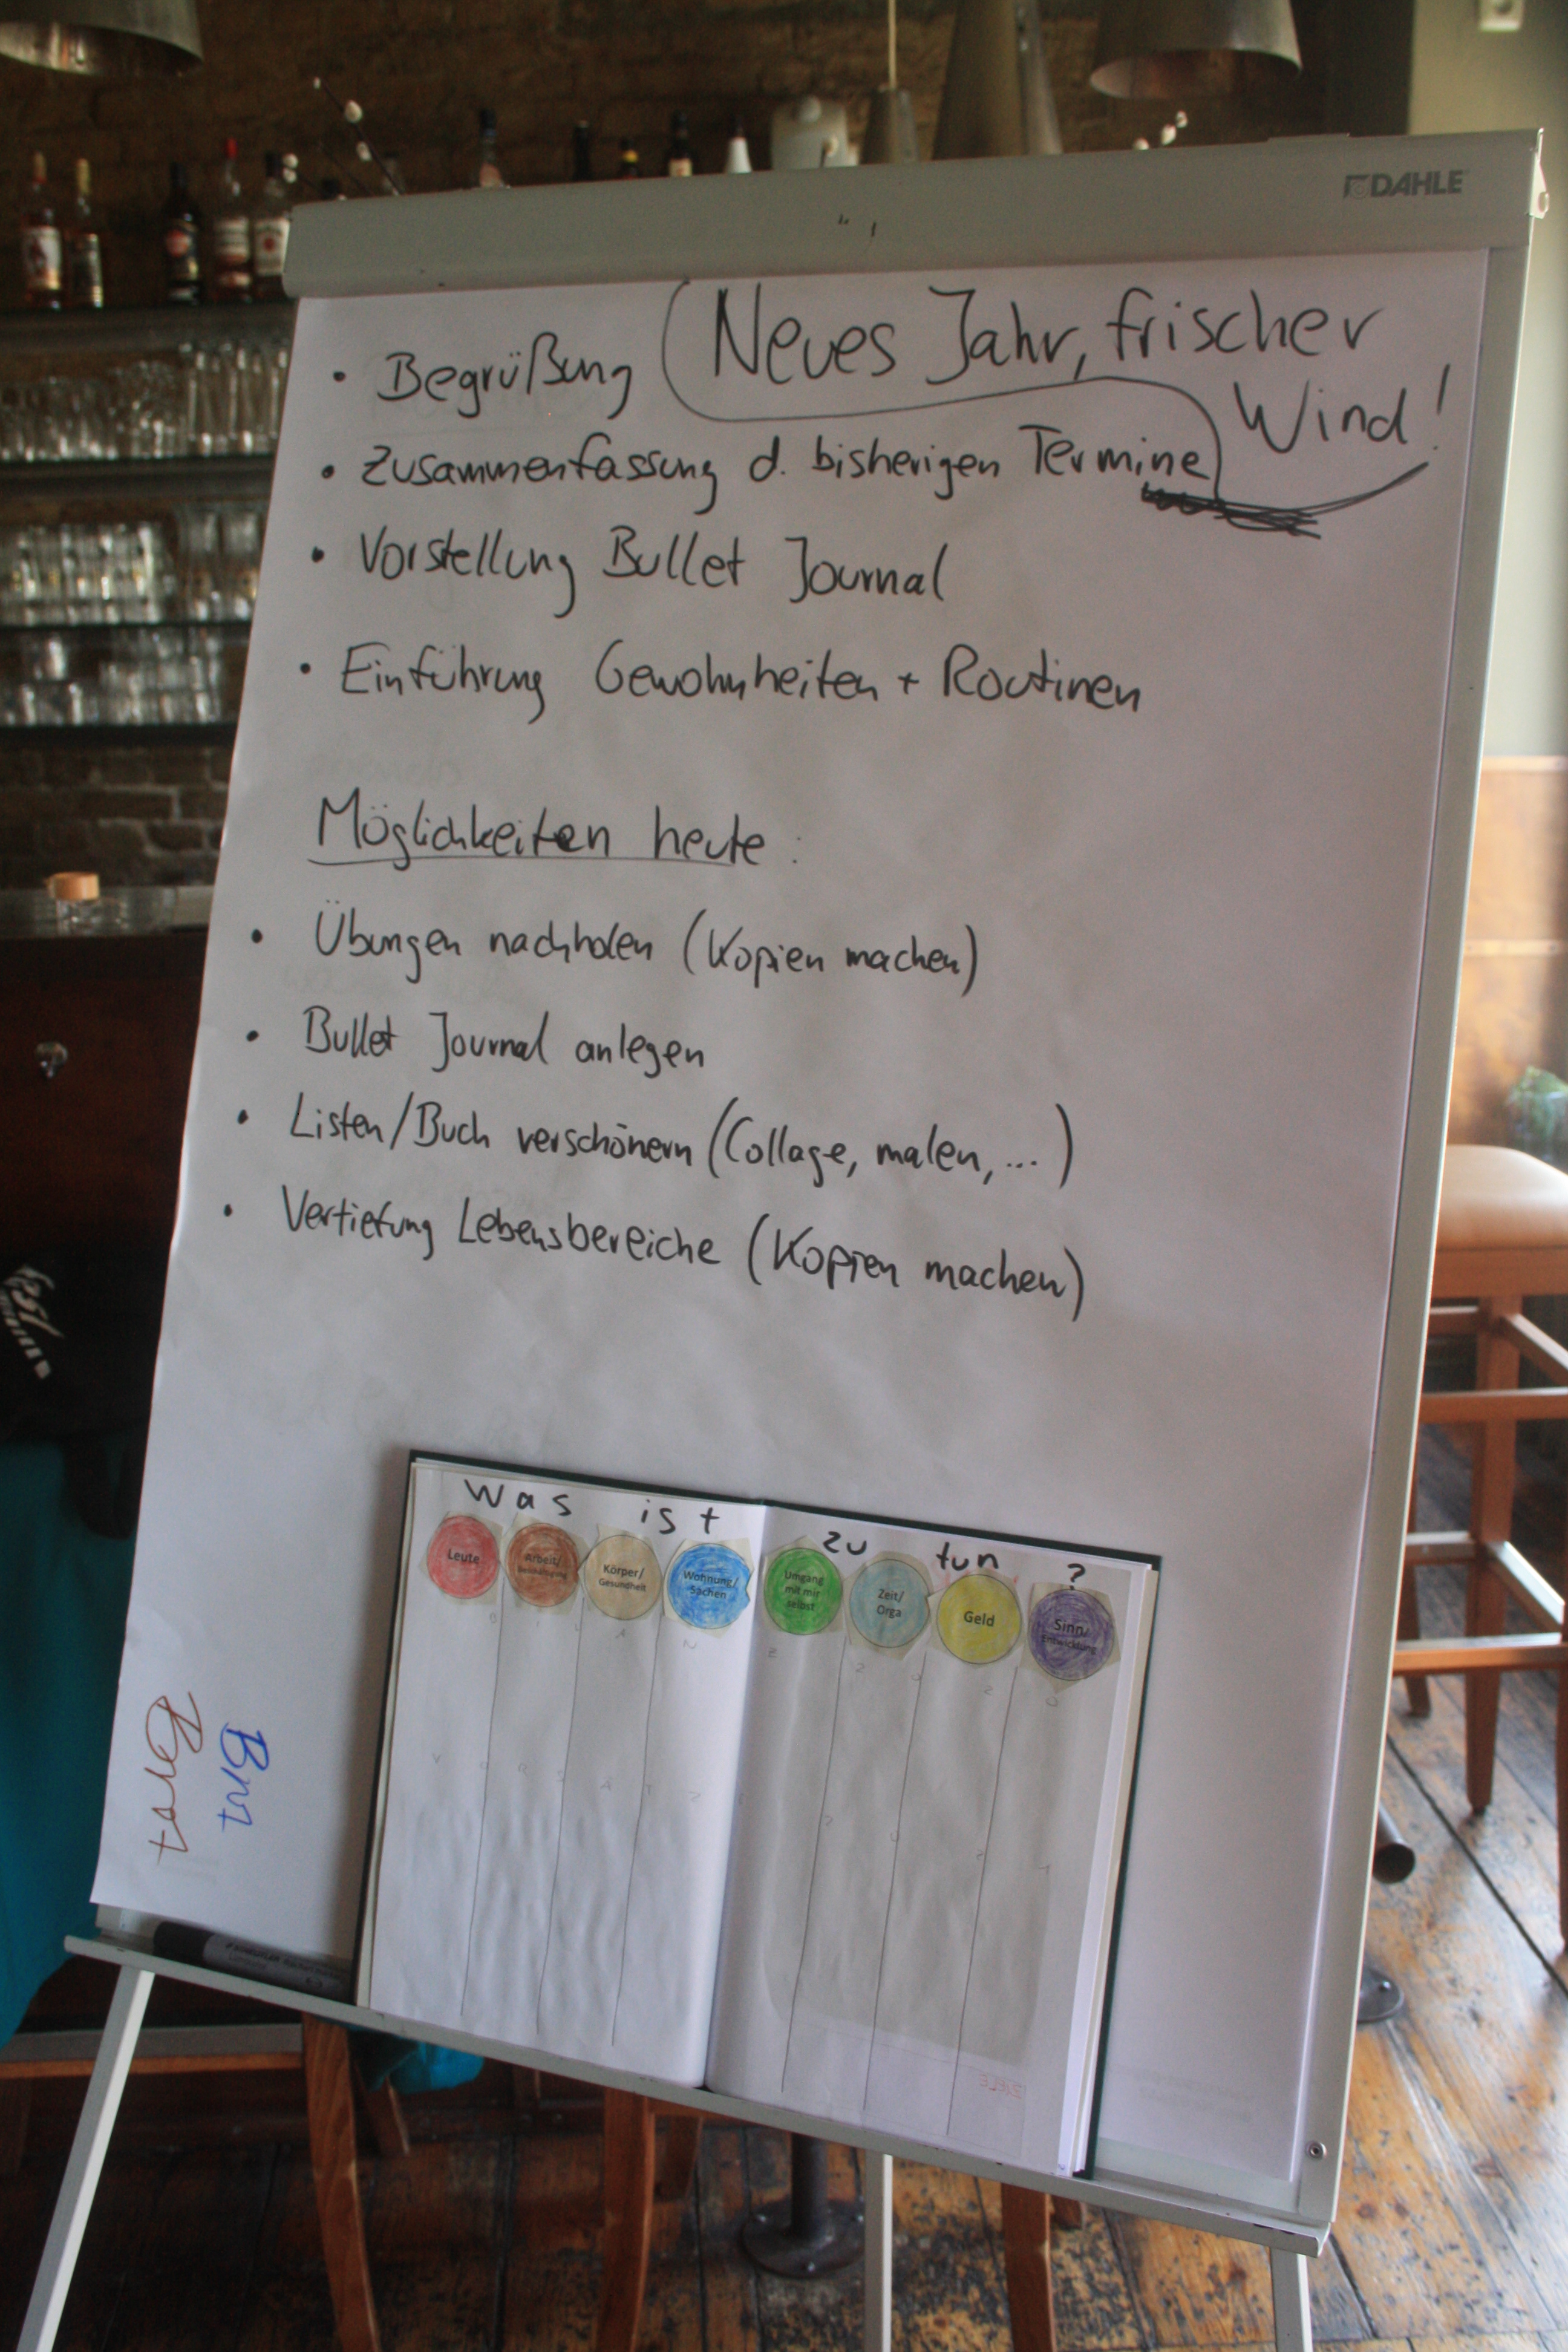 DAHLE
Neues Jahr, frischer
Wind!
• Begrüßung
• Zusammenfassung d. bisherigen Termine
• Vorstellung Bullet Journal
• Einführung Gewohnheiten + Routinen
Möglichkeiten heute:
• Übungen nachholen (Kopien machen)
• Bullet Journal anlegen
• Listen/Buch verschönern (Collage, malen, ...)
• Vertiefung Lebensbereiche (Kopien machen)
Was ist zu tun ?
Leute
Arbeit/
Körper/
Gesundheit
Wohnung/
Sachen
Umgang
mit mir
selbst
Zeit/
Orga
Geld
Sinn/
Entwicklung